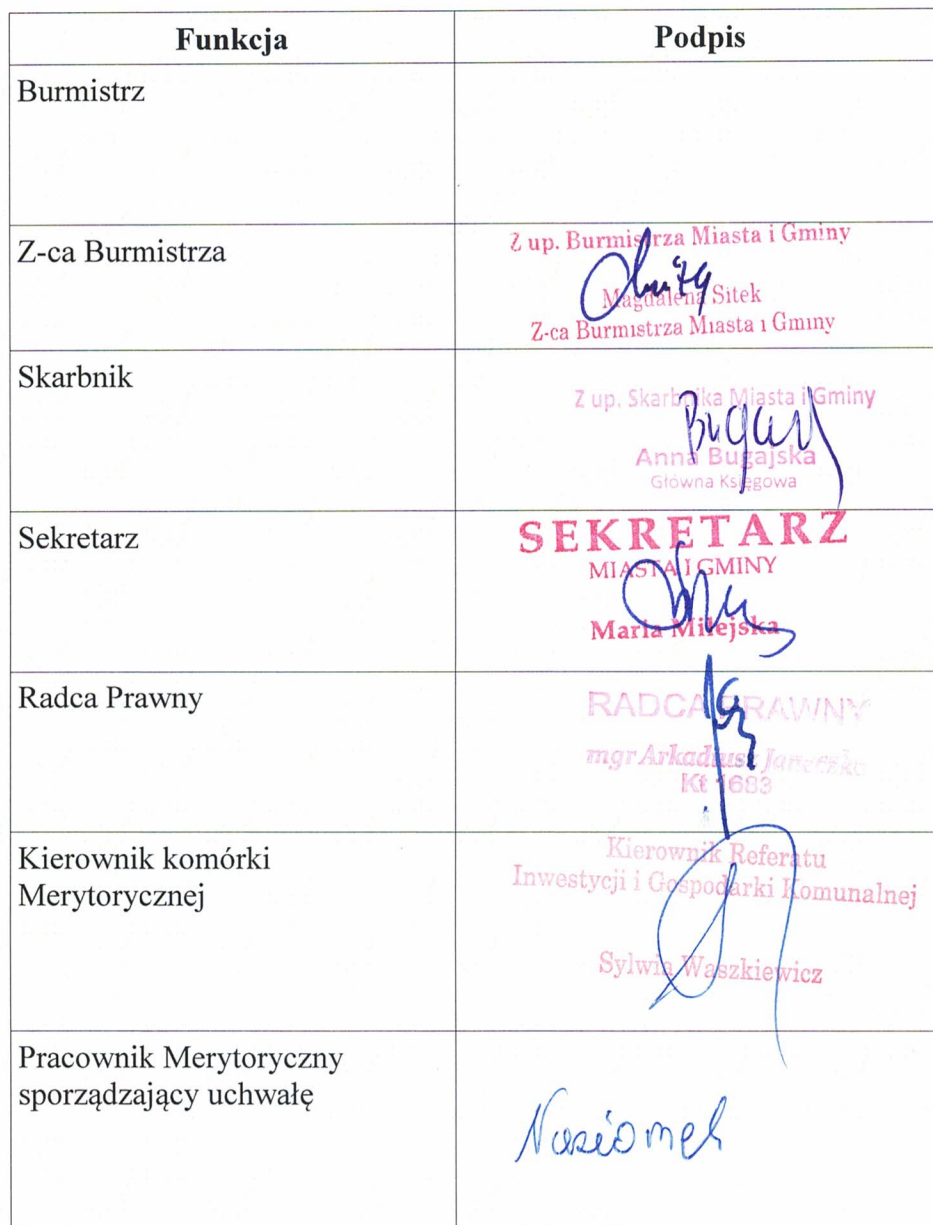 Funkcja
Podpis
Burmistrz
Z-ca Burmistrza
Z up. Burmistrza Miasta i Gminy
Magdalena Sitek
Z-ca Burmistrza Miasta i Gminy
Skarbnik
Z up. Skarbnika Miasta i Gminy
Anna Bugajska
Główna Księgowa
Sekretarz
SEKRETARZ
MIASTA I GMINY
Maria Milejska
Radca Prawny
RADCA PRAWNY
mgr Arkadiusz Janeczko
Kt 1683
Kierownik komórki
Merytorycznej
Kierownik Referatu
Inwestycji i Gospodarki Komunalnej
Sylwia Waszkiewicz
Pracownik Merytoryczny
sporządzający uchwałę